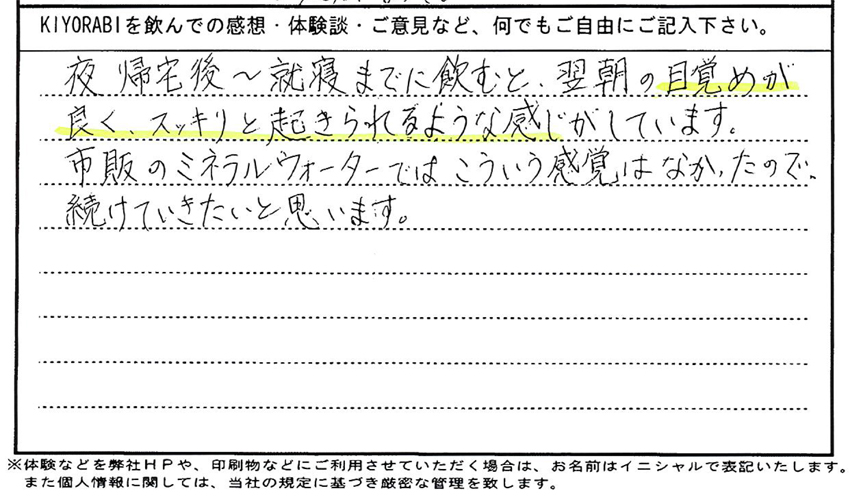 KIYORABIを飲んでの感想・体験談・ご意見など、何でもご自由にご記入下さい。
夜 帰宅後～就寝までに飲むと、翌朝の目覚めが
良く、スッキリと起きられるような感じがしています。
市販のミネラルウォーターではこういう感覚はなかったので、
続けていきたいと思います。
※体験などを弊社HPや、印刷物などにご利用させていただく場合は、お名前はイニシャルで表記いたします。
また個人情報に関しては、当社の規定に基づき厳密な管理を致します。